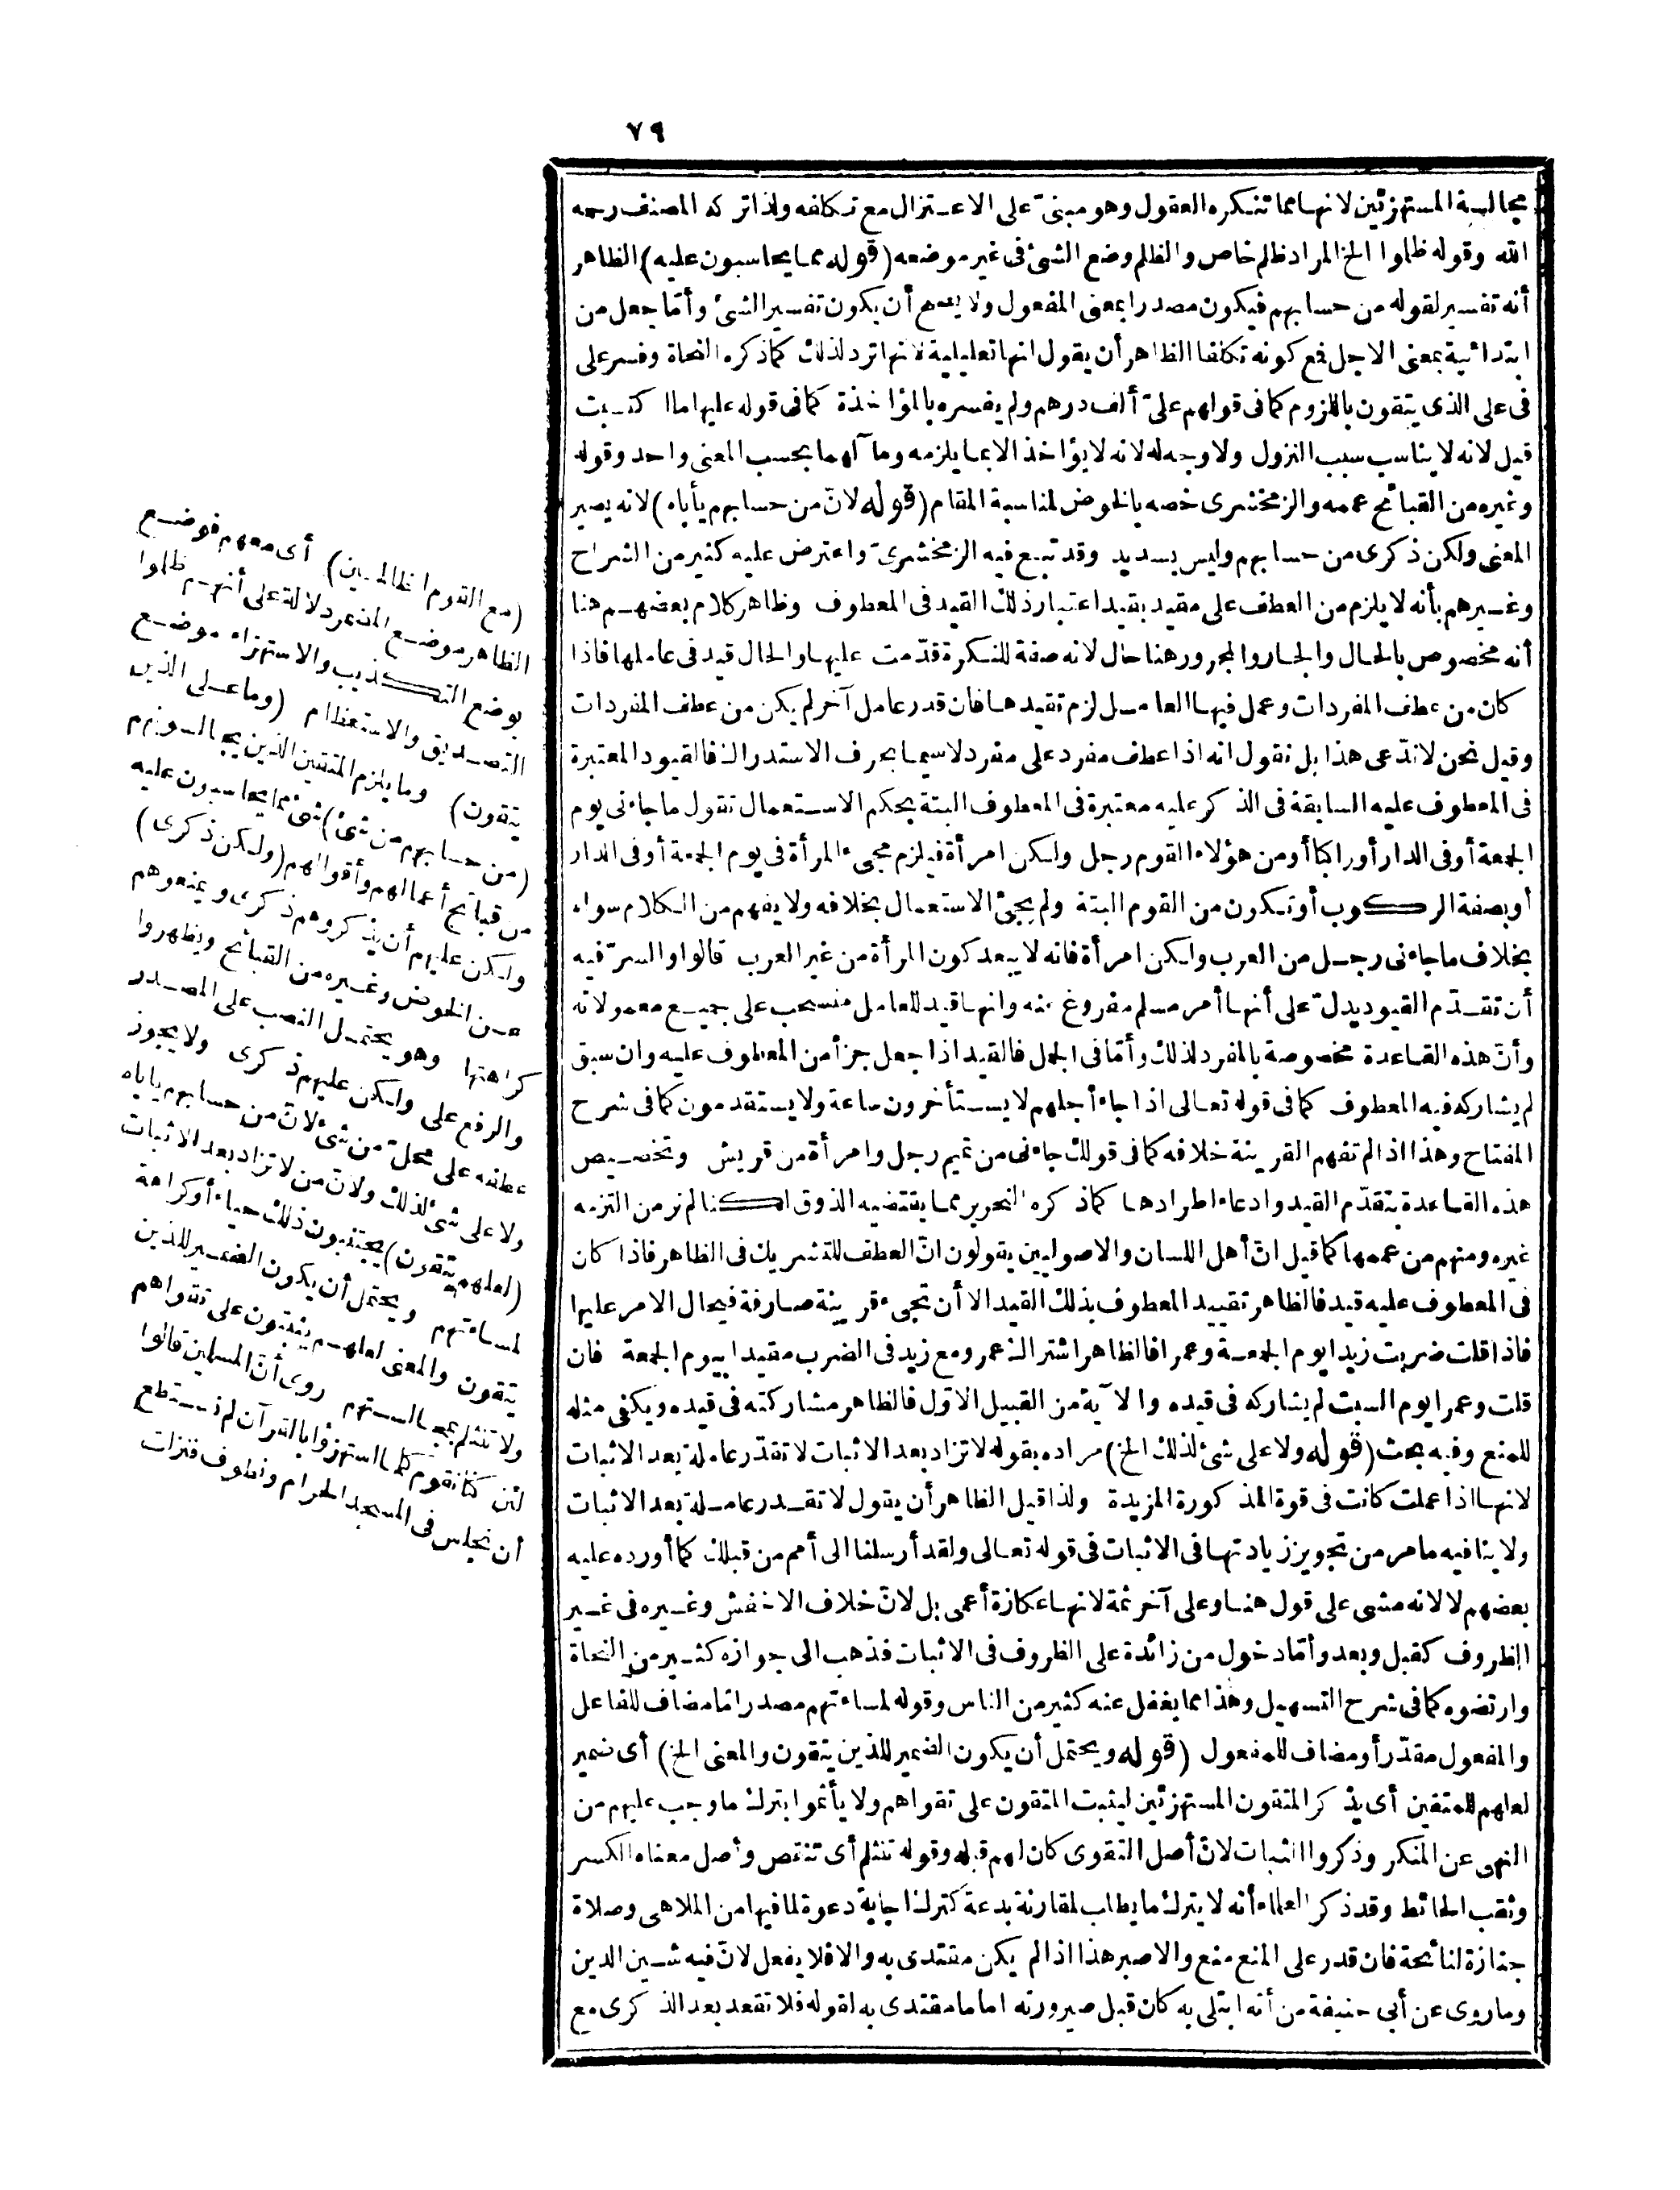 ٧٩
مجالسة المستهزئين لانها مما تنكره العقول وهو مبنىّ على الاعتزال مع تكلفه ولذا تركه المصنف رحمه
الله وقوله ظلموا الخ المراد ظلم خاص والظلم وضع الشئ فى غير موضعه (قوله مما يحاسبون عليه) الظاهر
أنه تفسير لقوله من حسابهم فيكون مصدرا بمعنى المفعول ولا يصح أن يكون تفسير الشئ وأمّا جعل من
ابتدائية بمعنى الاجل فمع كونه تكلفا الظاهر أن يقول انها تعليلية لانها ترد لذلك كما ذكره النحاة وفسر على
فى على الذى يتقون باللزوم كما فى قولهم علىّ ألف درهم ولم يفسره بالمؤاخذة كما فى قوله عليها ما اكتسبت
قيل لانه لا يناسب سبب النزول ولا وجه له لانه لا يؤاخذ الا بما يلزمه ومآلهما بحسب المعنى واحد وقوله
وغيره من القبائح عممه والزمخشرى خصه بالخوض لمناسبة المقام (قوله لانّ من حسابهم يأباه) لانه يصير
المعنى ولكن ذكرى من حسابهم وليس بسديد وقد تبع فيه الزمخشرىّ واعترض عليه كثير من الشراح
وغيرهم بأنه لا يلزم من العطف على مقيد بقيد اعتبار ذلك القيد فى المعطوف وظاهر كلام بعضهم هنا
أنه مخصوص بالحال والجار والمجرور هنا حال لانه صفة للنكرة قدّمت عليها والحال قيد فى عاملها فاذا
كان من عطف المفردات وعمل فيها العامل لزم تقيدها فان قدر عامل آخر لم يكن من عطف المفردات
وقيل نحن لا ندّعى هذا بل نقول انه اذا عطف مفرد على مفرد لا سيما بحرف الاستدراك فالقيود المعتبرة
فى المعطوف عليه السابقة فى الذكر عليه معتبرة فى المعطوف البتة بحكم الاستعمال تقول ما جاءنى يوم
الجمعة أو فى الدار أو راكبا أو من هؤلاء القوم رجل ولكن امرأة فيلزم مجىء المرأة فى يوم الجمعة أو فى الدار
أو بصفة الركوب أو تكون من القوم البتة ولم يجئ الاستعمال بخلافه ولا يفهم من الكلام سواه
بخلاف ما جاءنى رجل من العرب ولكن امرأة فانه لا يبعد كون المرأة من غير العرب قالوا والسرّ فيه
أن تقدّم القيود يدلّ على أنها أمر مسلم مفروغ منه وانها قيد للعامل منسحب على جميع معمولاته
وأنّ هذه القاعدة مخصوصة بالمفرد لذلك وأمّا فى الجمل فالقيد اذا جعل جزأ من المعطوف عليه وان سبق
لم يشاركه فيه المعطوف كما فى قوله تعالى اذا جاء أجلهم لا يستأخرون ساعة ولا يستقدمون كما فى شرح
المفتاح وهذا اذا لم تفهم القرينة خلافه كما فى قولك جاءنى من تميم رجل وامرأة من قريش وتخصيص
هذه القاعدة بتقدّم القيد وادعاء اطرادها كما ذكره النحرير مما يقتضيه الذوق لكنا لم نر من التزمه
غيره ومنهم من عممها كما قيل انّ أهل اللسان والاصوليين يقولون انّ العطف للتشريك فى الظاهر فاذا كان
فى المعطوف عليه قيد فالظاهر تقييد المعطوف بذلك القيد الا أن تجىء قرينة صارفة فيحال الامر عليها
فاذا قلت ضربت زيدا يوم الجمعة وعمرا فالظاهر اشتراك عمرو مع زيد فى الضرب مقيدا بيوم الجمعة فان
قلت وعمرا يوم السبت لم يشاركه فى قيده والآية من القبيل الاوّل فالظاهر مشاركته فى قيده ويكفى مثله
للمنع وفيه بحث (قوله ولا على شئ لذلك الخ) مراده بقوله لا تزاد بعد الاثبات لا تقدّر عاملة بعد الاثبات
لانها اذا عملت كانت فى قوة المذكورة المزيدة ولذا قيل الظاهر أن يقول لا تقدر عاملة بعد الاثبات
ولا ينافيه ما مر من تجويز زيادتها فى الاثبات فى قوله تعالى ولقد أرسلنا الى أمم من قبلك كما أورده عليه
بعضهم لا لانه مشى على قول هنا وعلى آخر ثمة لانها عكازة أعمى بل لانّ خلاف الاخفش وغيره فى غير
الظروف كقبل وبعد وأمّا دخول من زائدة على الظروف فى الاثبات فذهب الى جوازه كثير من النحاة
وارتضوه كما فى شرح التسهيل وهذا مما يغفل عنه كثير من الناس وقوله لمساءتهم مصدر امّا مضاف للفاعل
والمفعول مقدّر أو مضاف للمفعول (قوله ويحتمل أن يكون الضمير للذين يتقون والمعنى الخ) أى ضمير
لعلهم للمتقين أى يذكر المتقون المستهزئين ليثبت المتقون على تقواهم ولا يأثموا بترك ما وجب عليهم من
النهى عن المنكر وذكروا الثبات لانّ أصل التقوى كان لهم قبله وقوله تنثلم أى تنتقص وأصل معناه الكسر
ونقب الحائط وقد ذكر العلماء أنه لا يترك ما يطلب لمقارنة بدعة كترك اجابة دعوة لما فيها من الملاهى وصلاة
جنازة لنائحة فان قدر على المنع منع والا صبر هذا اذا لم يكن مقتدى به والا فلا يفعل لانّ فيه شين الدين
وما روى عن أبى حنيفة من أنه ابتلى به كان قبل صيرورته اماما مقتدى به لقوله فلا تقعد بعد الذكرى مع
(مع القوم الظالمين) أى معهم فوضع
الظاهر موضع المضمر دلالة على أنهم ظلموا
بوضع التكذيب والاستهزاء موضع
التصديق والاستعظام (وما على الذين
يتقون) وما يلزم المتقين الذين يجالسونهم
(من حسابهم من شئ) شئ مما يحاسبون عليه
من قبائح أعمالهم وأقوالهم (ولكن ذكرى)
ولكن عليهم أن يذكروهم ذكرى ويمنعوهم
عن الخوض وغيره من القبائح ويظهروا
كراهتها وهو يحتمل النصب على المصدر
والرفع على ولكن عليهم ذكرى ولا يجوز
عطفه على محلّ من شئ لانّ من حسابهم يأباه
ولا على شئ لذلك ولانّ من لا تزاد بعد الاثبات
(لعلهم يتقون) يجتنبون ذلك حياء أو كراهة
لمساءتهم ويحتمل أن يكون الضمير للذين
يتقون والمعنى لعلهم يثبتون على تقواهم
ولا تنثلم بمجالستهم روى أنّ المسلمين قالوا
لئن كنا نقوم كلما استهزؤا بالقرآن لم نستطع
أن نجلس فى المسجد الحرام ونطوف فنزلت